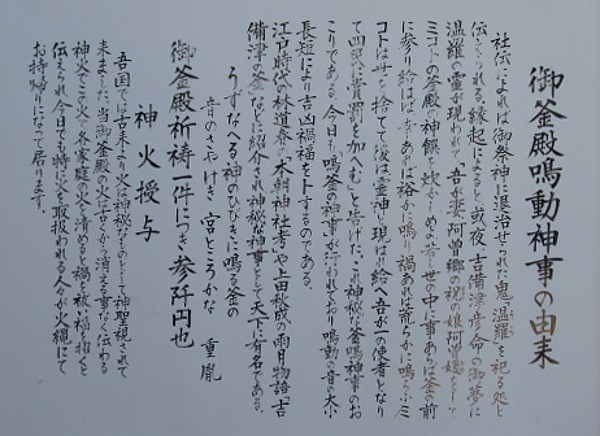 御釜殿鳴動神事の由来
社伝によれば御祭神に退治せられた鬼「温羅」を祀る処と
伝えられる。縁起によると或夜、吉備津彦命の御夢に
温羅の霊が現われて「吾が妻、阿曽郷の祝の娘阿曽媛をして
ミコトの釜殿の神饌を炊かしめよ。若し世の中に事あらば釜の前
に参り給はば幸あれば裕かに鳴り禍あれば荒らかに鳴らふ。ミ
コトは世を捨てて後は霊神と現はれ給へ吾が一の使者となり
て四民に賞罰を加へむ」と告げた。これ神秘な釜鳴神事のお
こりである。今日も「鳴釜の神事」が行われており鳴動の音の大小
長短により吉凶禍福を卜するのである。
江戸時代の林道春の「本朝神社考」や上田秋成の雨月物語「吉
備津の釜」などに紹介され神秘な神事として天下に有名である。
うすなへる神のひびきに鳴る釜の
音のさやけき宮ところかな 重胤
御釜殿祈祷一件につき参阡円也
神火授与
吾国では古来より火は神秘なものとして神聖視されて
来ました。当御釜殿の火は古くから消える事なく伝わる
神火でこの火で各家庭の火を清めると禍を祓い福を招くと
伝えられ今日でも特に火を取扱われる人々が火縄にて
お持帰りになって居ります。